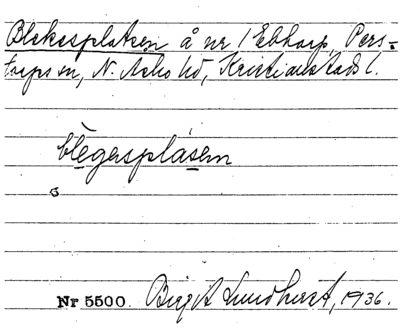 Blekesplatsen å nr 1 Ebbarp, Pers-
torps sn, N. Åsbo hd, Kristianstads l.
blegespläsen
Nr 5500. Birgit Lundkvist, 1936.